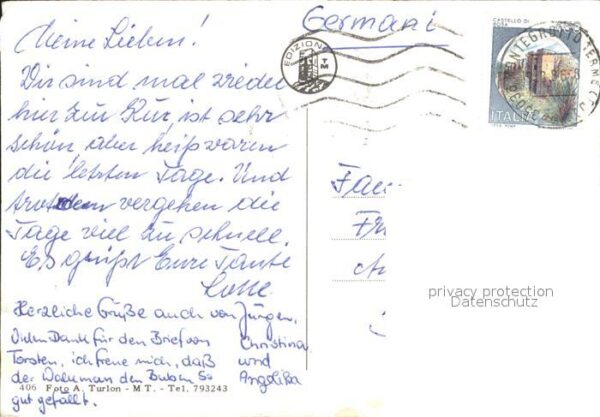 Germani
CASTELLO DI
Meine Lieben!
EDIZIONE
MONTEGROTTO TERME
Wir sind mal wieder
hier zur Kur, ist sehr
schön aber heiß waren
ITALIA
die letzten Tage. Und
trotzdem vergehen die
Tage viel zu schnell.
Es grüßt Eure Tante
Lotte.
privacy protection
Datenschutz
Herzliche Grüße auch von Jürgen,
Vielen Dank für den Brief von Christina
Torsten, ich freue mich, daß und
der Walkman den Buben so Angelika
406 Foto A. Turlon - M T. - Tel. 793243
gut gefällt.